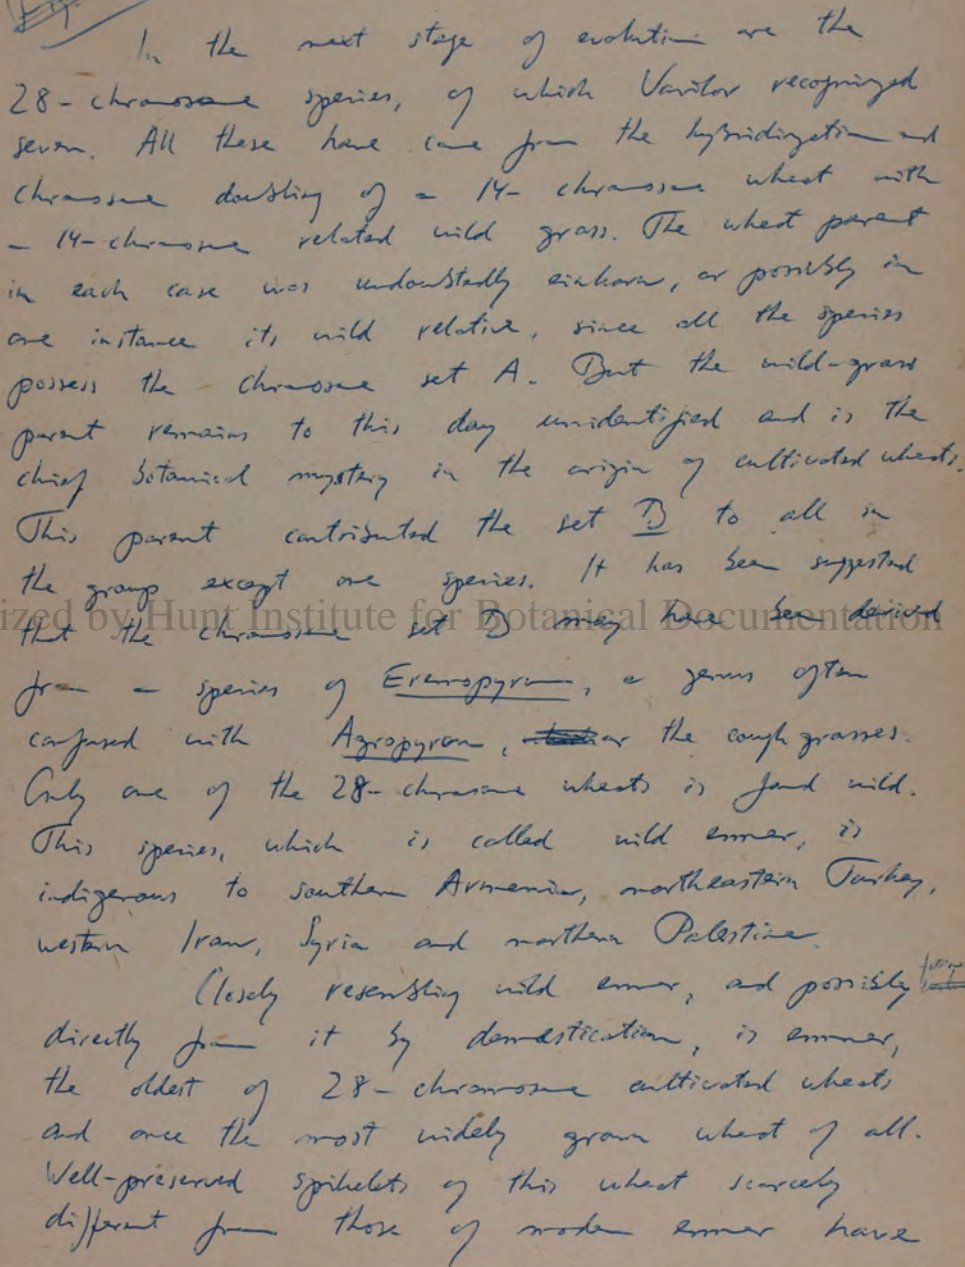 In the next stage of evolution are the
28-chromosome species, of which Vavilov recognized
seven. All these have come from the hybridization and
chromosome doubling of a 14-chromosome wheat with
a 14-chromosome related wild grass. The wheat parent
in each case was undoubtedly einkorn, or possibly in
one instance its wild relative, since all the species
possess the chromosome set A. But the wild-grass
parent remains to this day unidentified and is the
chief botanical mystery in the origin of cultivated wheats.
This parent contributed the set B to all in
the group except one species. It has been suggested
ized by Hunt Institute for Botanical Documentation
that the chromosome set B may have been derived
from a species of Eremopyrum, a genus often
confused with Agropyron, or the couch grasses.
Only one of the 28-chromosome wheats is found wild.
This species, which is called wild emmer, is
indigenous to southern Armenia, northeastern Turkey,
western Iran, Syria and northern Palestine.
Closely resembling wild emmer, and possibly
directly from it by domestication, is emmer,
the oldest of 28-chromosome cultivated wheats
and once the most widely grown wheat of all.
Well-preserved spikelets of this wheat scarcely
different from those of modern emmer have